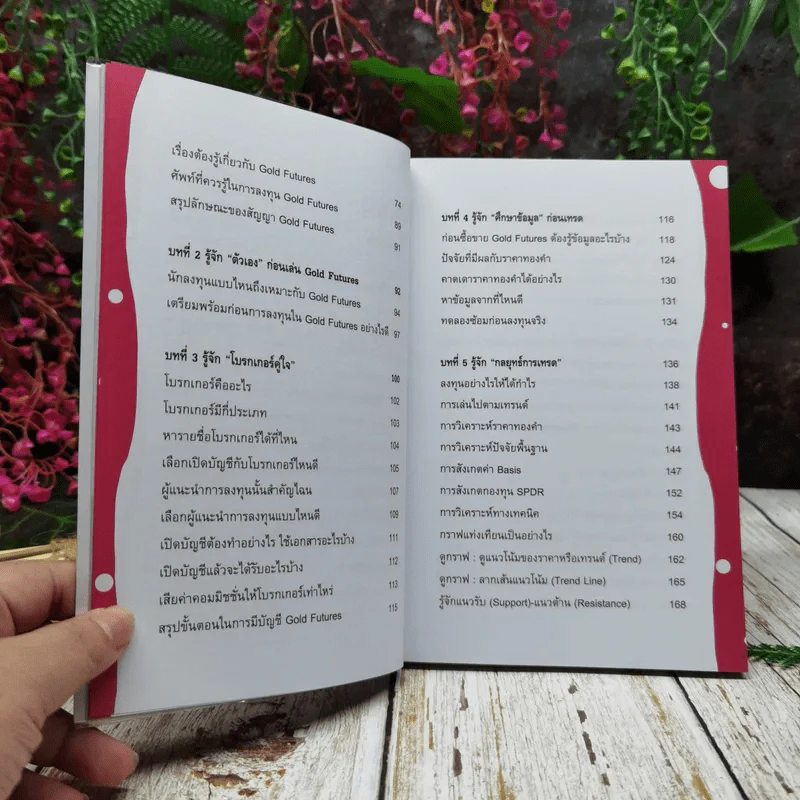 เรื่องต้องรู้เกี่ยวกับ Gold Futures 74
ศัพท์ที่ควรรู้ในการลงทุน Gold Futures 89
สรุปลักษณะของสัญญา Gold Futures 91
บทที่ 2 รู้จัก “ตัวเอง” ก่อนเล่น Gold Futures 92
นักลงทุนแบบไหนถึงเหมาะกับ Gold Futures 94
เตรียมพร้อมก่อนการลงทุนใน Gold Futures อย่างไรดี 97
บทที่ 3 รู้จัก “โบรกเกอร์คู่ใจ” 100
โบรกเกอร์คืออะไร 102
โบรกเกอร์มีกี่ประเภท 103
หารายชื่อโบรกเกอร์ได้ที่ไหน 104
เลือกเปิดบัญชีกับโบรกเกอร์ไหนดี 105
ผู้แนะนำการลงทุนนั้นสำคัญไฉน 107
เลือกผู้แนะนำการลงทุนแบบไหนดี 109
เปิดบัญชีต้องทำอย่างไร ใช้เอกสารอะไรบ้าง 111
เปิดบัญชีแล้วจะได้รับอะไรบ้าง 112
เสียค่าคอมมิชชั่นให้โบรกเกอร์เท่าไหร่ 113
สรุปขั้นตอนในการมีบัญชี Gold Futures 115
บทที่ 4 รู้จัก “ศึกษาข้อมูล” ก่อนเทรด 116
ก่อนซื้อขาย Gold Futures ต้องรู้ข้อมูลอะไรบ้าง 118
ปัจจัยที่มีผลกับราคาทองคำ 124
คาดเดาราคาทองคำได้อย่างไร 130
หาข้อมูลจากที่ไหนดี 131
ทดลองซ้อมก่อนลงทุนจริง 134
บทที่ 5 รู้จัก “กลยุทธ์การเทรด” 136
ลงทุนอย่างไรให้ได้กำไร 138
การเล่นไปตามเทรนด์ 141
การวิเคราะห์ราคาทองคำ 143
การวิเคราะห์ปัจจัยพื้นฐาน 144
การสังเกตค่า Basis 147
การสังเกตกองทุน SPDR 152
การวิเคราะห์ทางเทคนิค 154
กราฟแท่งเทียนเป็นอย่างไร 160
ดูกราฟ : ดูแนวโน้มของราคาหรือเทรนด์ (Trend) 162
ดูกราฟ : ลากเส้นแนวโน้ม (Trend Line) 165
รู้จักแนวรับ (Support)-แนวต้าน (Resistance) 168